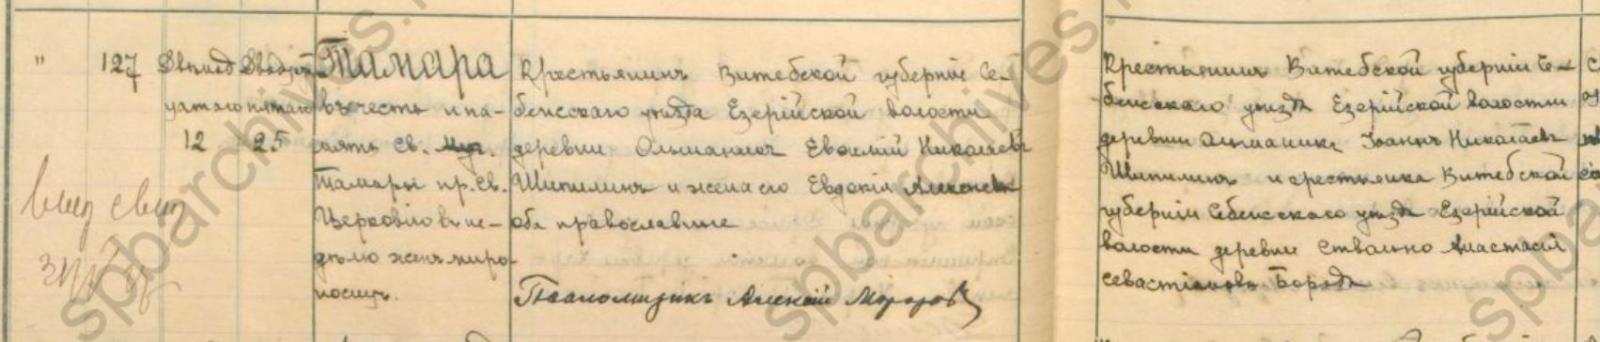 " 127 Двенад Двадца Тамара
цатаго пятаго въ честь и па-
12 25 мять Св. Муч.
Тамары пр. Св.
Церковію въ не-
дѣлю женъ миро-
носицъ.
Крестьянинъ Витебской губерніи Се-
бежскаго уѣзда Езерійской волости
деревни Ольшанинъ Евсилій Николаевъ
Шипилинъ и жена его Евдокія Алексѣева
оба православные
Псаломщикъ Алексій Морозовъ
Крестьянинъ Витебской губерніи Се-
бежскаго уѣзда Езерійской волости
деревни Іоаннъ Николаевъ
Шипилинъ и крестьянка Витебской
губерніи Себежскаго уѣзда Езерійской
волости деревни Ствольно Анастасія
Севастіанова
spbarchives.
spbarchives.